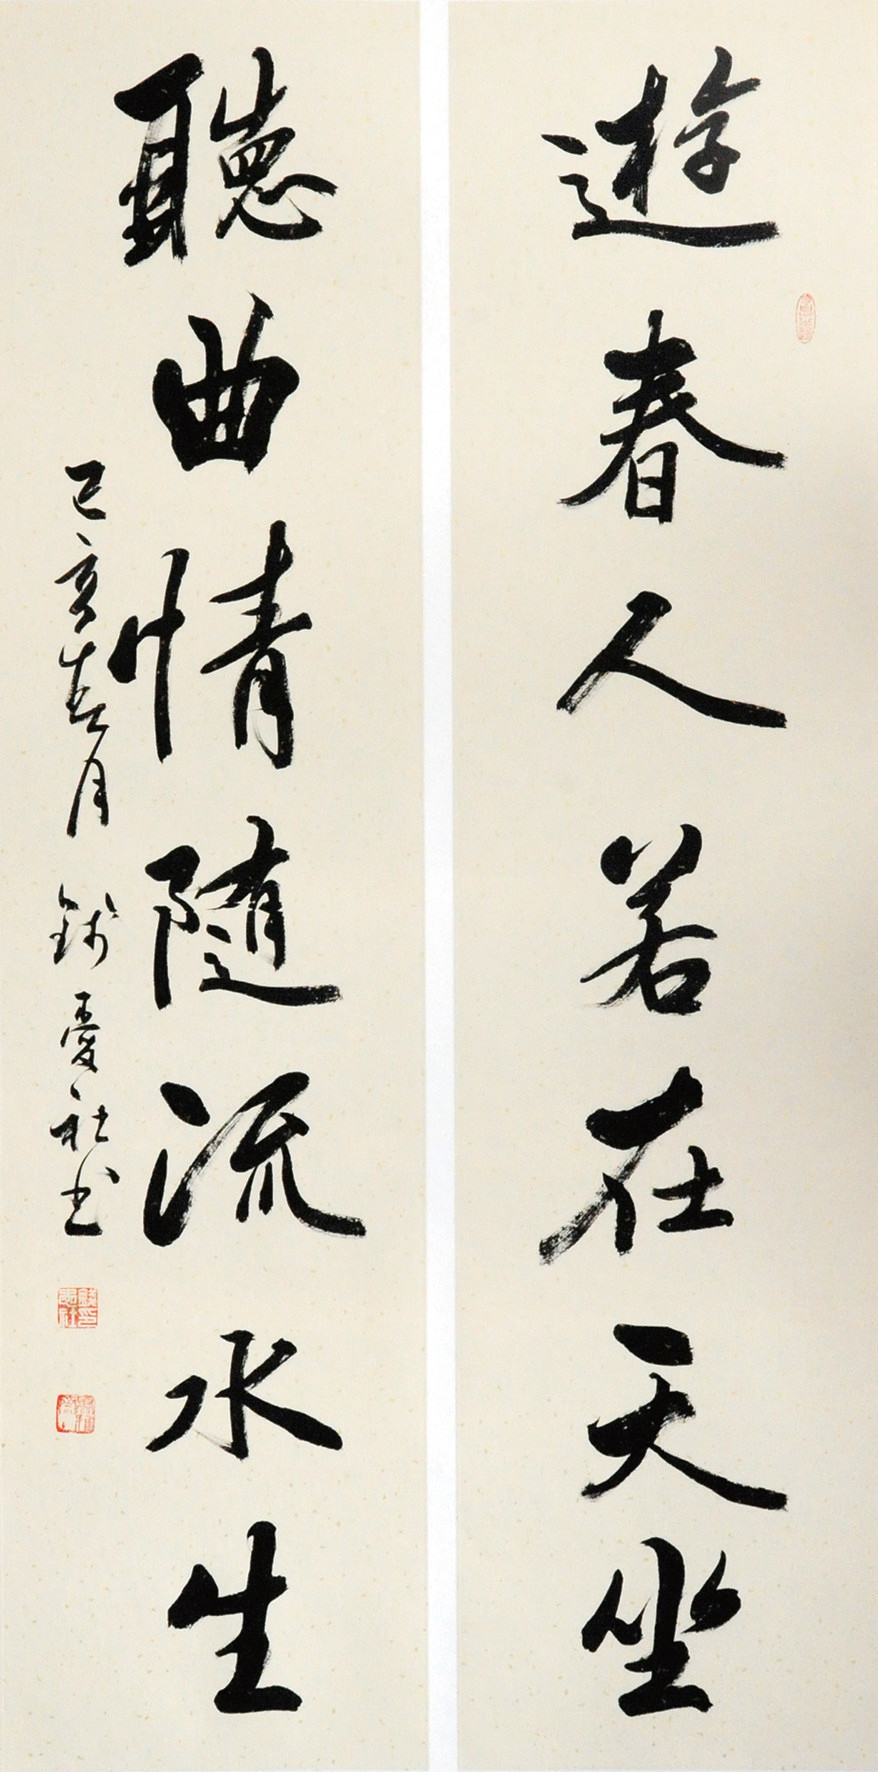 遊春人若在天坐
聽曲情隨流水生
己亥春月 錢愛社书